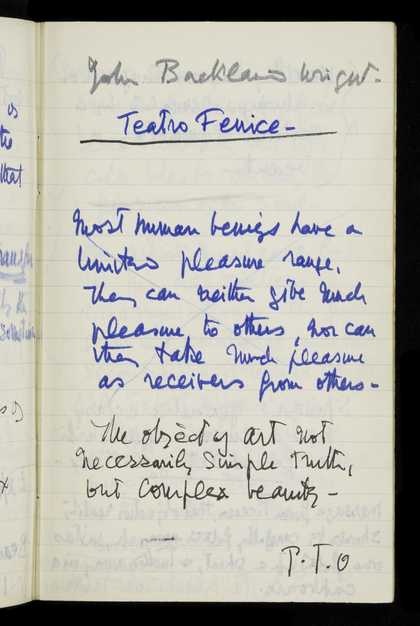 John Buckland Wright.
Teatro Fenice -
Most human beings have a
limited pleasure range,
They can neither give much
pleasure to others, nor can
they take much pleasure
as receivers from others -
The object of art not
necessarily simple truth,
but complex beauty -
P.T.O
os
the
that